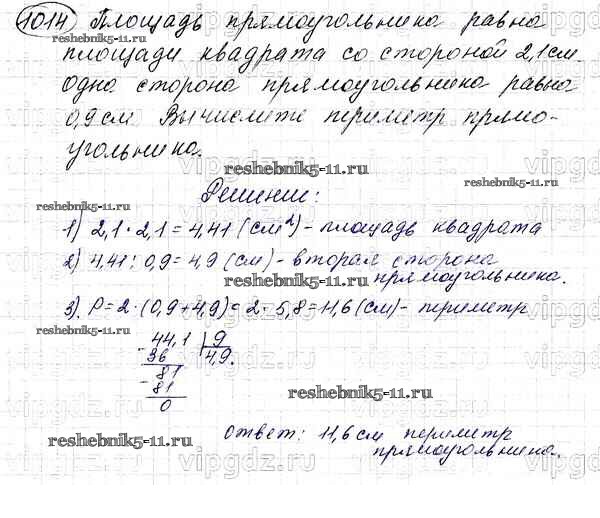 1014 Площадь прямоугольника равна
площади квадрата со стороной 2,1 см.
Одна сторона прямоугольника равна
0,9 см Вычислите периметр прямо-
угольника.
reshebnik5-11.ru
reshebnik5-11.ru
Решение:
reshebnik5-11.ru
1) 2,1 · 2,1 = 4,41 (см²) - площадь квадрата
2) 4,41 : 0,9 = 4,9 (см) - вторая сторона
прямоугольника.
3). P = 2 · (0,9 + 4,9) = 2 · 5,8 = 11,6 (см) - периметр
reshebnik5-11.ru
44,1 | 9
- 36 4,9.
81
- 81
0
reshebnik5-11.ru
reshebnik5-11.ru
Ответ: 11,6 см периметр
прямоугольника.